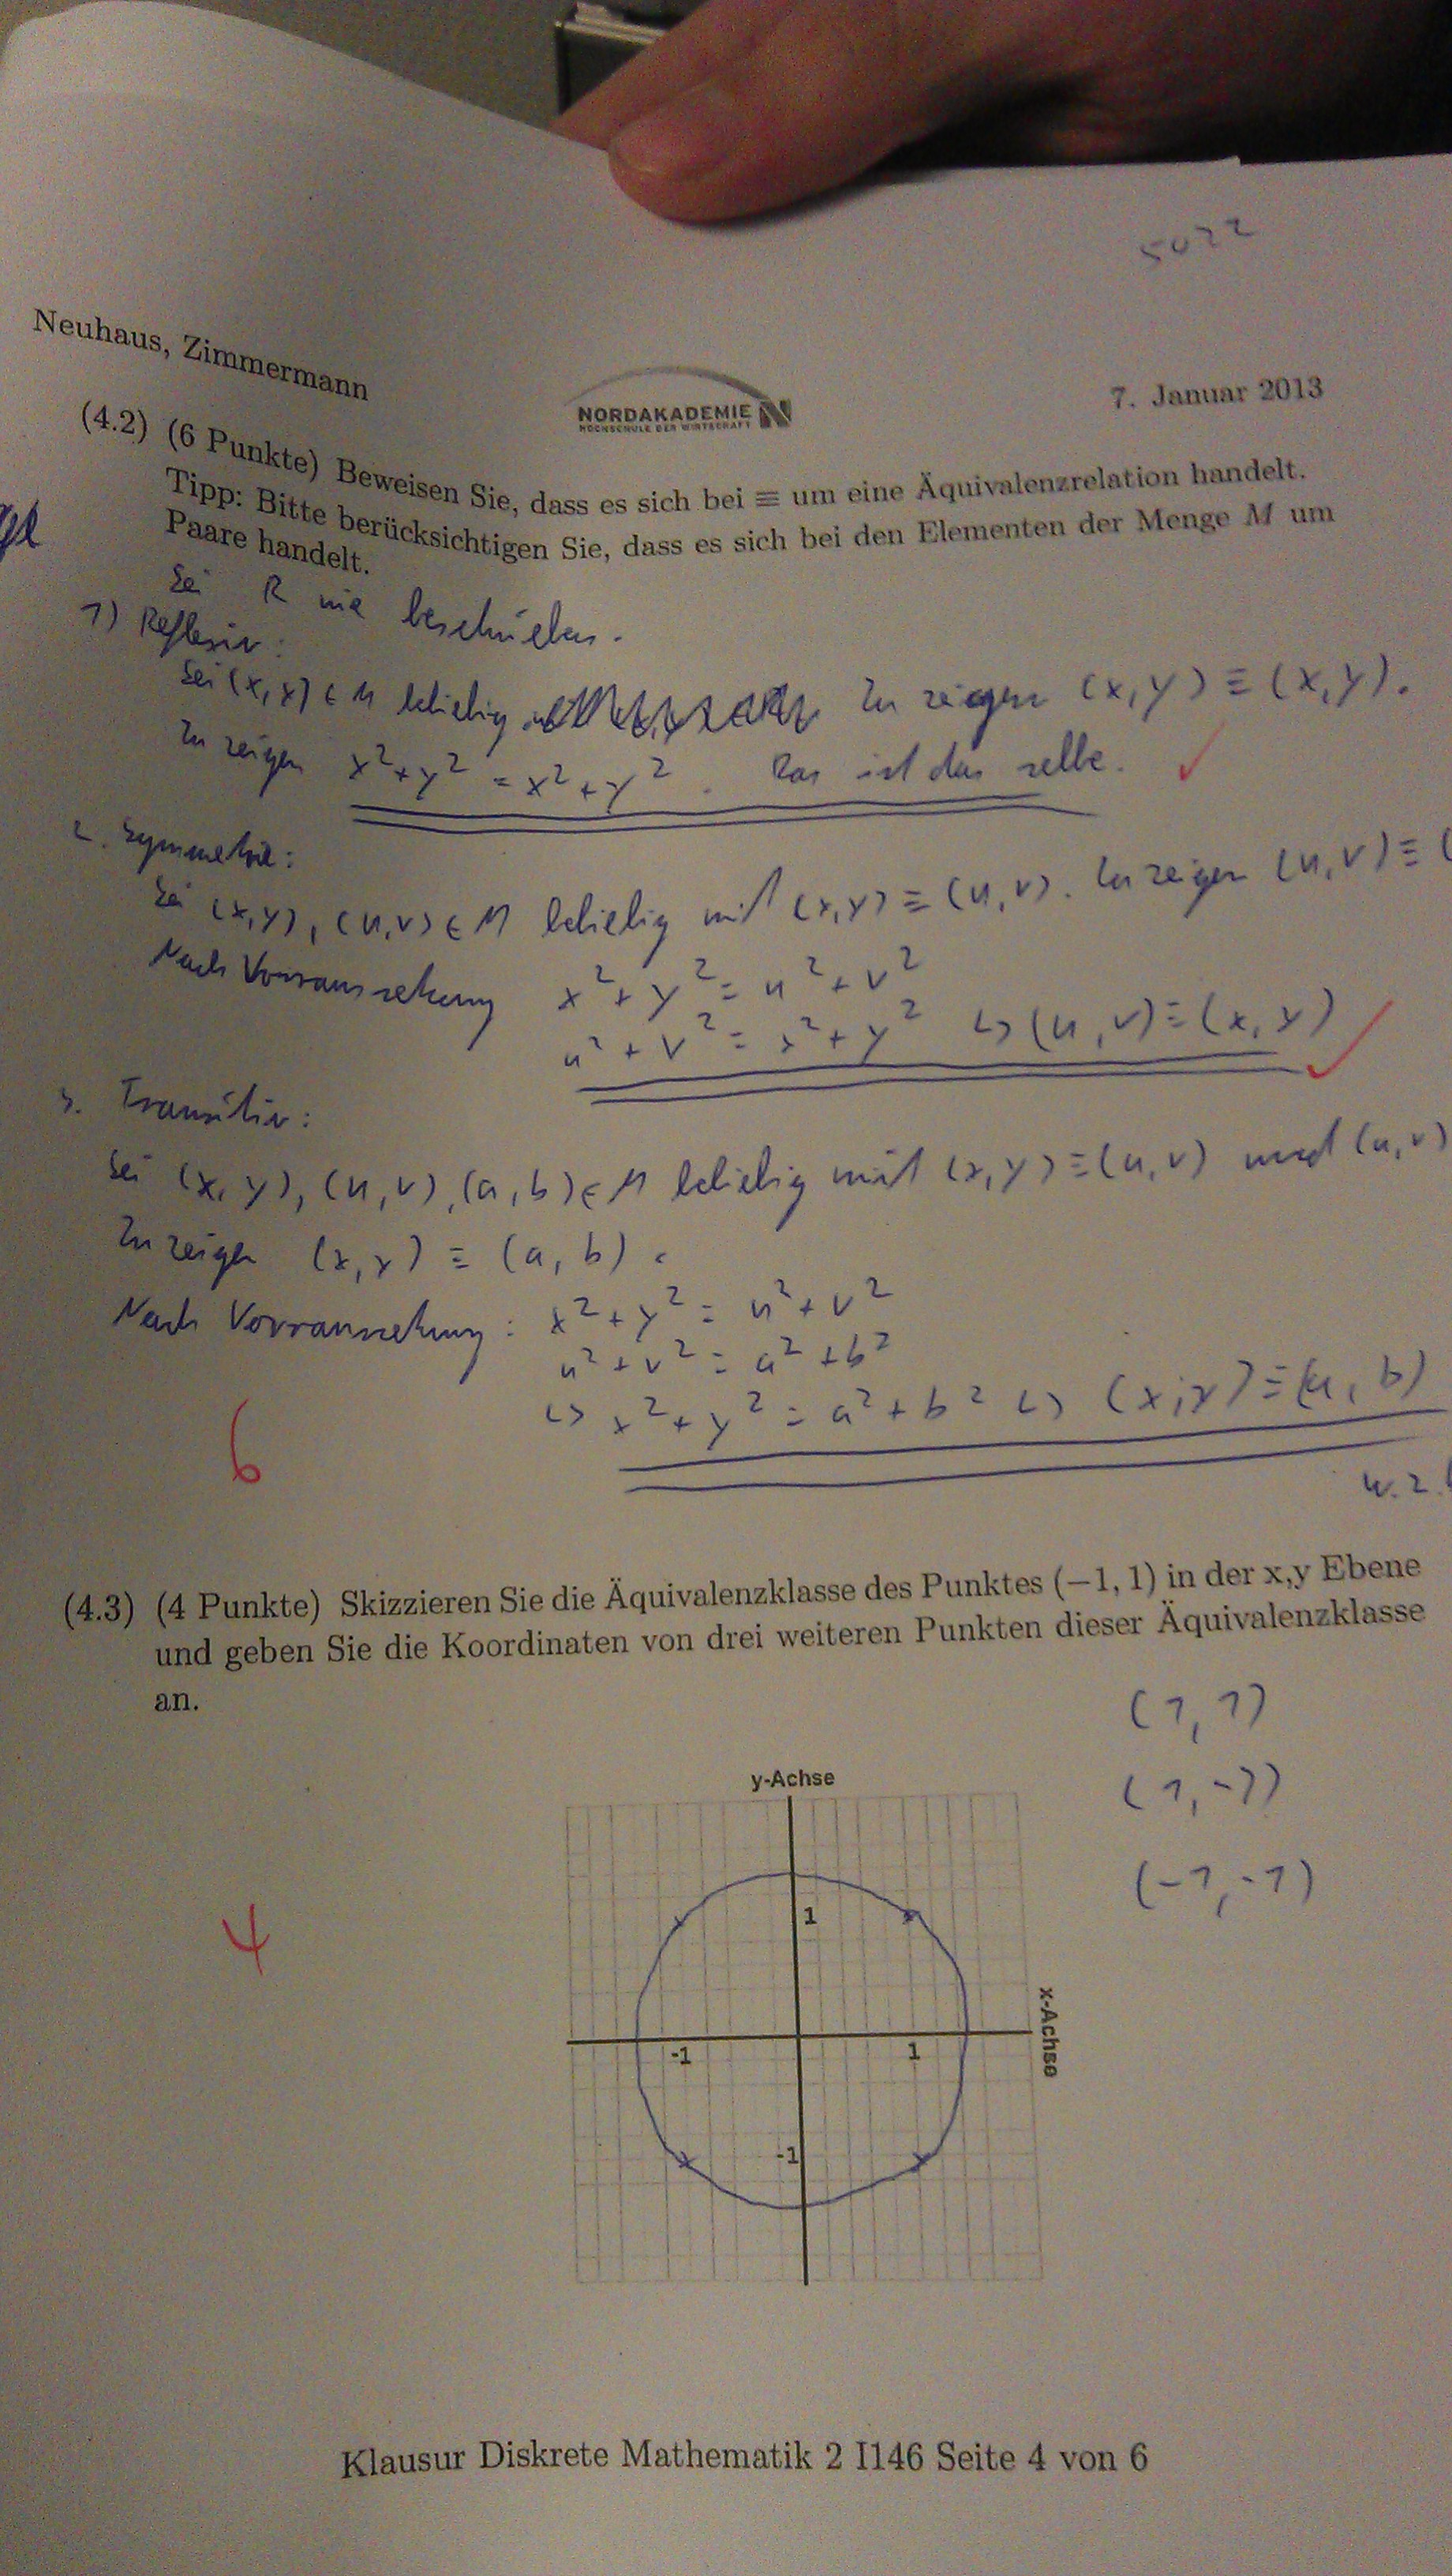 5022
Neuhaus, Zimmermann
NORDAKADEMIE N
HOCHSCHULE DER WIRTSCHAFT
7. Januar 2013
(4.2) (6 Punkte) Beweisen Sie, dass es sich bei ≡ um eine Äquivalenzrelation handelt.
Tipp: Bitte berücksichtigen Sie, dass es sich bei den Elementen der Menge M um
Paare handelt.
Sei R wie beschrieben.
1) Reflexiv:
Sei (x,y) ∈ M beliebig Zu zeigen (x,y) ≡ (x,y).
Zu zeigen x²+y² = x²+y². Das ist das selbe. ✓
2. Symmetrie:
Sei (x,y), (u,v) ∈ M beliebig mit (x,y) ≡ (u,v). Zu zeigen (u,v) ≡ (
Nach Vorraussetzung x²+y² = u²+v²
u²+v² = x²+y² ↪ (u,v) ≡ (x,y) ✓
3. Transitiv:
Sei (x,y), (u,v), (a,b) ∈ M beliebig mit (x,y) ≡ (u,v) und (u,v)
Zu zeigen (x,y) ≡ (a,b).
Nach Vorraussetzung: x²+y² = u²+v²
u²+v² = a²+b²
↪ x²+y² = a²+b² ↪ (x,y) ≡ (a,b)
6
w.z.
(4.3) (4 Punkte) Skizzieren Sie die Äquivalenzklasse des Punktes (−1, 1) in der x,y Ebene
und geben Sie die Koordinaten von drei weiteren Punkten dieser Äquivalenzklasse
an.
(1,1)
(1,-1)
(-1,-1)
y-Achse
1
4
x-Achse
-1
1
-1
Klausur Diskrete Mathematik 2 I146 Seite 4 von 6